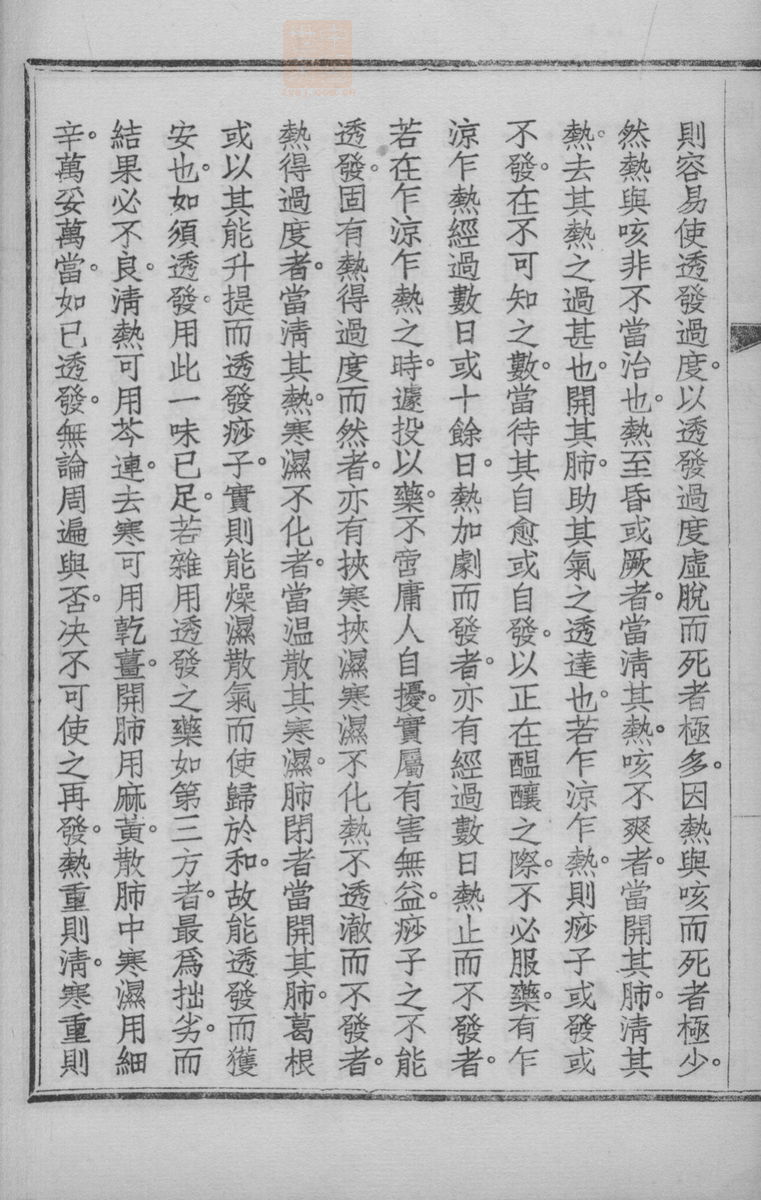 則容易使透發過度。以透發過度虛脫而死者極多。因熱與咳而死者極少。
然熱與咳非不當治也。熱至昏或厥者。當清其熱。咳不爽者。當開其肺。清其
熱。去其熱之過甚也。開其肺。助其氣之透達也。若乍涼乍熱。則痧子或發或
不發。在不可知之數。當待其自愈或自發。以正在醞釀之際。不必服藥。有乍
涼乍熱經過數日或十餘日。熱加劇而發者。亦有經過數日熱止而不發者。
若在乍涼乍熱之時。遽投以藥。不啻庸人自擾。實屬有害無益。痧子之不能
透發。固有熱得過度而然者。亦有挾寒挾濕寒濕不化熱不透澈而不發者。
熱得過度者。當清其熱。寒濕不化者。當温散其寒濕。肺閉者當開其肺。葛根
或以其能升提而透發痧子。實則能燥濕散氣而使歸於和。故能透發而獲
安也。如須透發。用此一味已足。若雜用透發之藥如第三方者。最爲拙劣。而
結果必不良。清熱可用芩連。去寒可用乾薑。開肺用麻黃。散肺中寒濕用細
辛。萬妥萬當。如已透發。無論周遍與否。决不可使之再發。熱重則清。寒重則